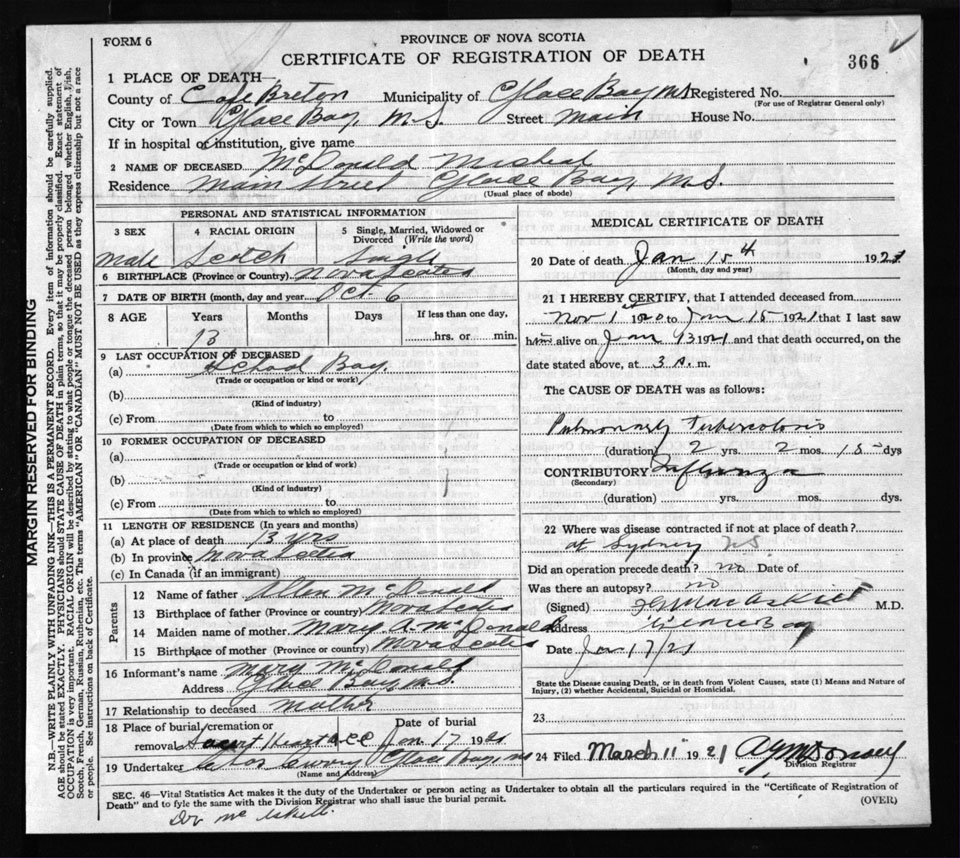 FORM 6
PROVINCE OF NOVA SCOTIA
CERTIFICATE OF REGISTRATION OF DEATH
366
1 PLACE OF DEATH—
County of Cape Breton Municipality of Glace Bay N.S. Registered No.
(For use of Registrar General only)
City or Town Glace Bay, N.S. Street Main House No.
If in hospital or institution, give name
2 NAME OF DECEASED McDonald Micheal
Residence Main Street Glace Bay, N.S.
(Usual place of abode)
PERSONAL AND STATISTICAL INFORMATION
3 SEX
4 RACIAL ORIGIN
5 Single, Married, Widowed or Divorced (Write the word)
Male Scotch Single
6 BIRTHPLACE (Province or Country) Nova Scotia
7 DATE OF BIRTH (month, day and year) Oct. 6
8 AGE Years Months Days If less than one day,
13 hrs. or min.
9 LAST OCCUPATION OF DECEASED
(a) School Boy
(Trade or occupation or kind or work)
(b)
(Kind of industry)
(c) From to
(Date from which to which so employed)
10 FORMER OCCUPATION OF DECEASED
(a)
(Trade or occupation or kind of work)
(b)
(Kind of industry)
(c) From to
(Date from which to which so employed)
11 LENGTH OF RESIDENCE (In years and months)
(a) At place of death 13 yrs
(b) In province Nova Scotia
(c) In Canada (if an immigrant)
Parents
12 Name of father Allen McDonald
13 Birthplace of father (Province or country) Nova Scotia
14 Maiden name of mother Mary A. McDonald
15 Birthplace of mother (Province or country) Nova Scotia
16 Informant's name Mary McDonald
Address Glace Bay, N.S.
17 Relationship to deceased Mother
18 Place of burial, cremation or Date of burial
removal Heart Jan 17 1921
19 Undertaker Curry Glace Bay, NS
(Name and Address)
MEDICAL CERTIFICATE OF DEATH
20 Date of death Jan 15th 1921
(Month, day and year)
21 I HEREBY CERTIFY, that I attended deceased from
Nov 1st 1920 to Jan 15 1921 that I last saw
him alive on Jan 13 1921 and that death occurred, on the
date stated above, at 3 a.m.
The CAUSE OF DEATH was as follows:
Pulmonary Tuberculosis
(duration) 2 yrs. 2 mos. 15 dys
CONTRIBUTORY Influenza
(Secondary)
(duration) yrs. mos. dys.
22 Where was disease contracted if not at place of death?
at Sydney NS
Did an operation precede death? no Date of
Was there an autopsy? no
(Signed) M.D.
Address Glace Bay
Date Jan 17/21
State the Disease causing Death, or in death from Violent Causes, state (1) Means and Nature of Injury, (2) whether Accidental, Suicidal or Homicidal.
23
24 Filed March 11 1921
Division Registrar
SEC. 46—Vital Statistics Act makes it the duty of the Undertaker or person acting as Undertaker to obtain all the particulars required in the "Certificate of Registration of
Death" and to fyle the same with the Division Registrar who shall issue the burial permit.
(OVER)
MARGIN RESERVED FOR BINDING
N.B.—WRITE PLAINLY WITH UNFADING INK—THIS IS A PERMANENT RECORD. Every item of information should be carefully supplied.
AGE should be stated EXACTLY. PHYSICIANS should STATE CAUSE OF DEATH in plain terms, so that it may be properly classified. Exact statement of
OCCUPATION is very important. RACIAL ORIGIN will be described by stating to what people or tongue the deceased person belonged whether English, Irish,
Scotch, French, German, Russian, Ruthenian, etc. The terms "AMERICAN" or "CANADIAN" MUST NOT BE USED as they express citizenship but not a race
or people. See instructions on back of Certificate.